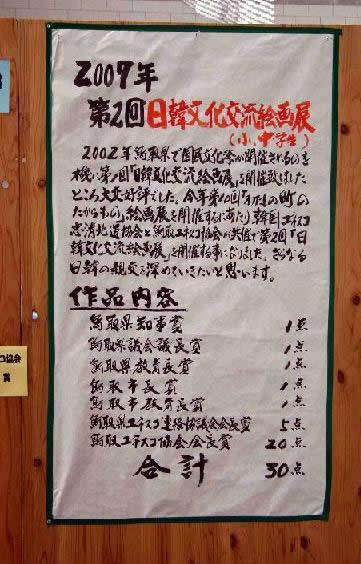 2007年
第2回日韓文化交流絵画展
(小、中学生)
2002年鳥取県で国民文化祭が開催されるのを
機に第1回「日韓文化交流絵画展」を開催致しました
ところ大変好評でした。今年第10回「わたしの町の
たからもの」絵画展を開催するにあたり韓国ユネスコ
忠清北道協会と鳥取ユネスコ協会が共催で第2回「日
韓文化交流絵画展」を開催する事になりました。さらなる
日韓の親交を深めていきたいと思います。
作品内容
鳥取県知事賞 1点
鳥取県議会議長賞 1点
鳥取県教育長賞 1点
鳥取市長賞 1点
鳥取市教育長賞 1点
鳥取県ユネスコ連絡協議会会長賞 5点
鳥取ユネスコ協会会長賞 20点
合計 30点
コ協会
賞